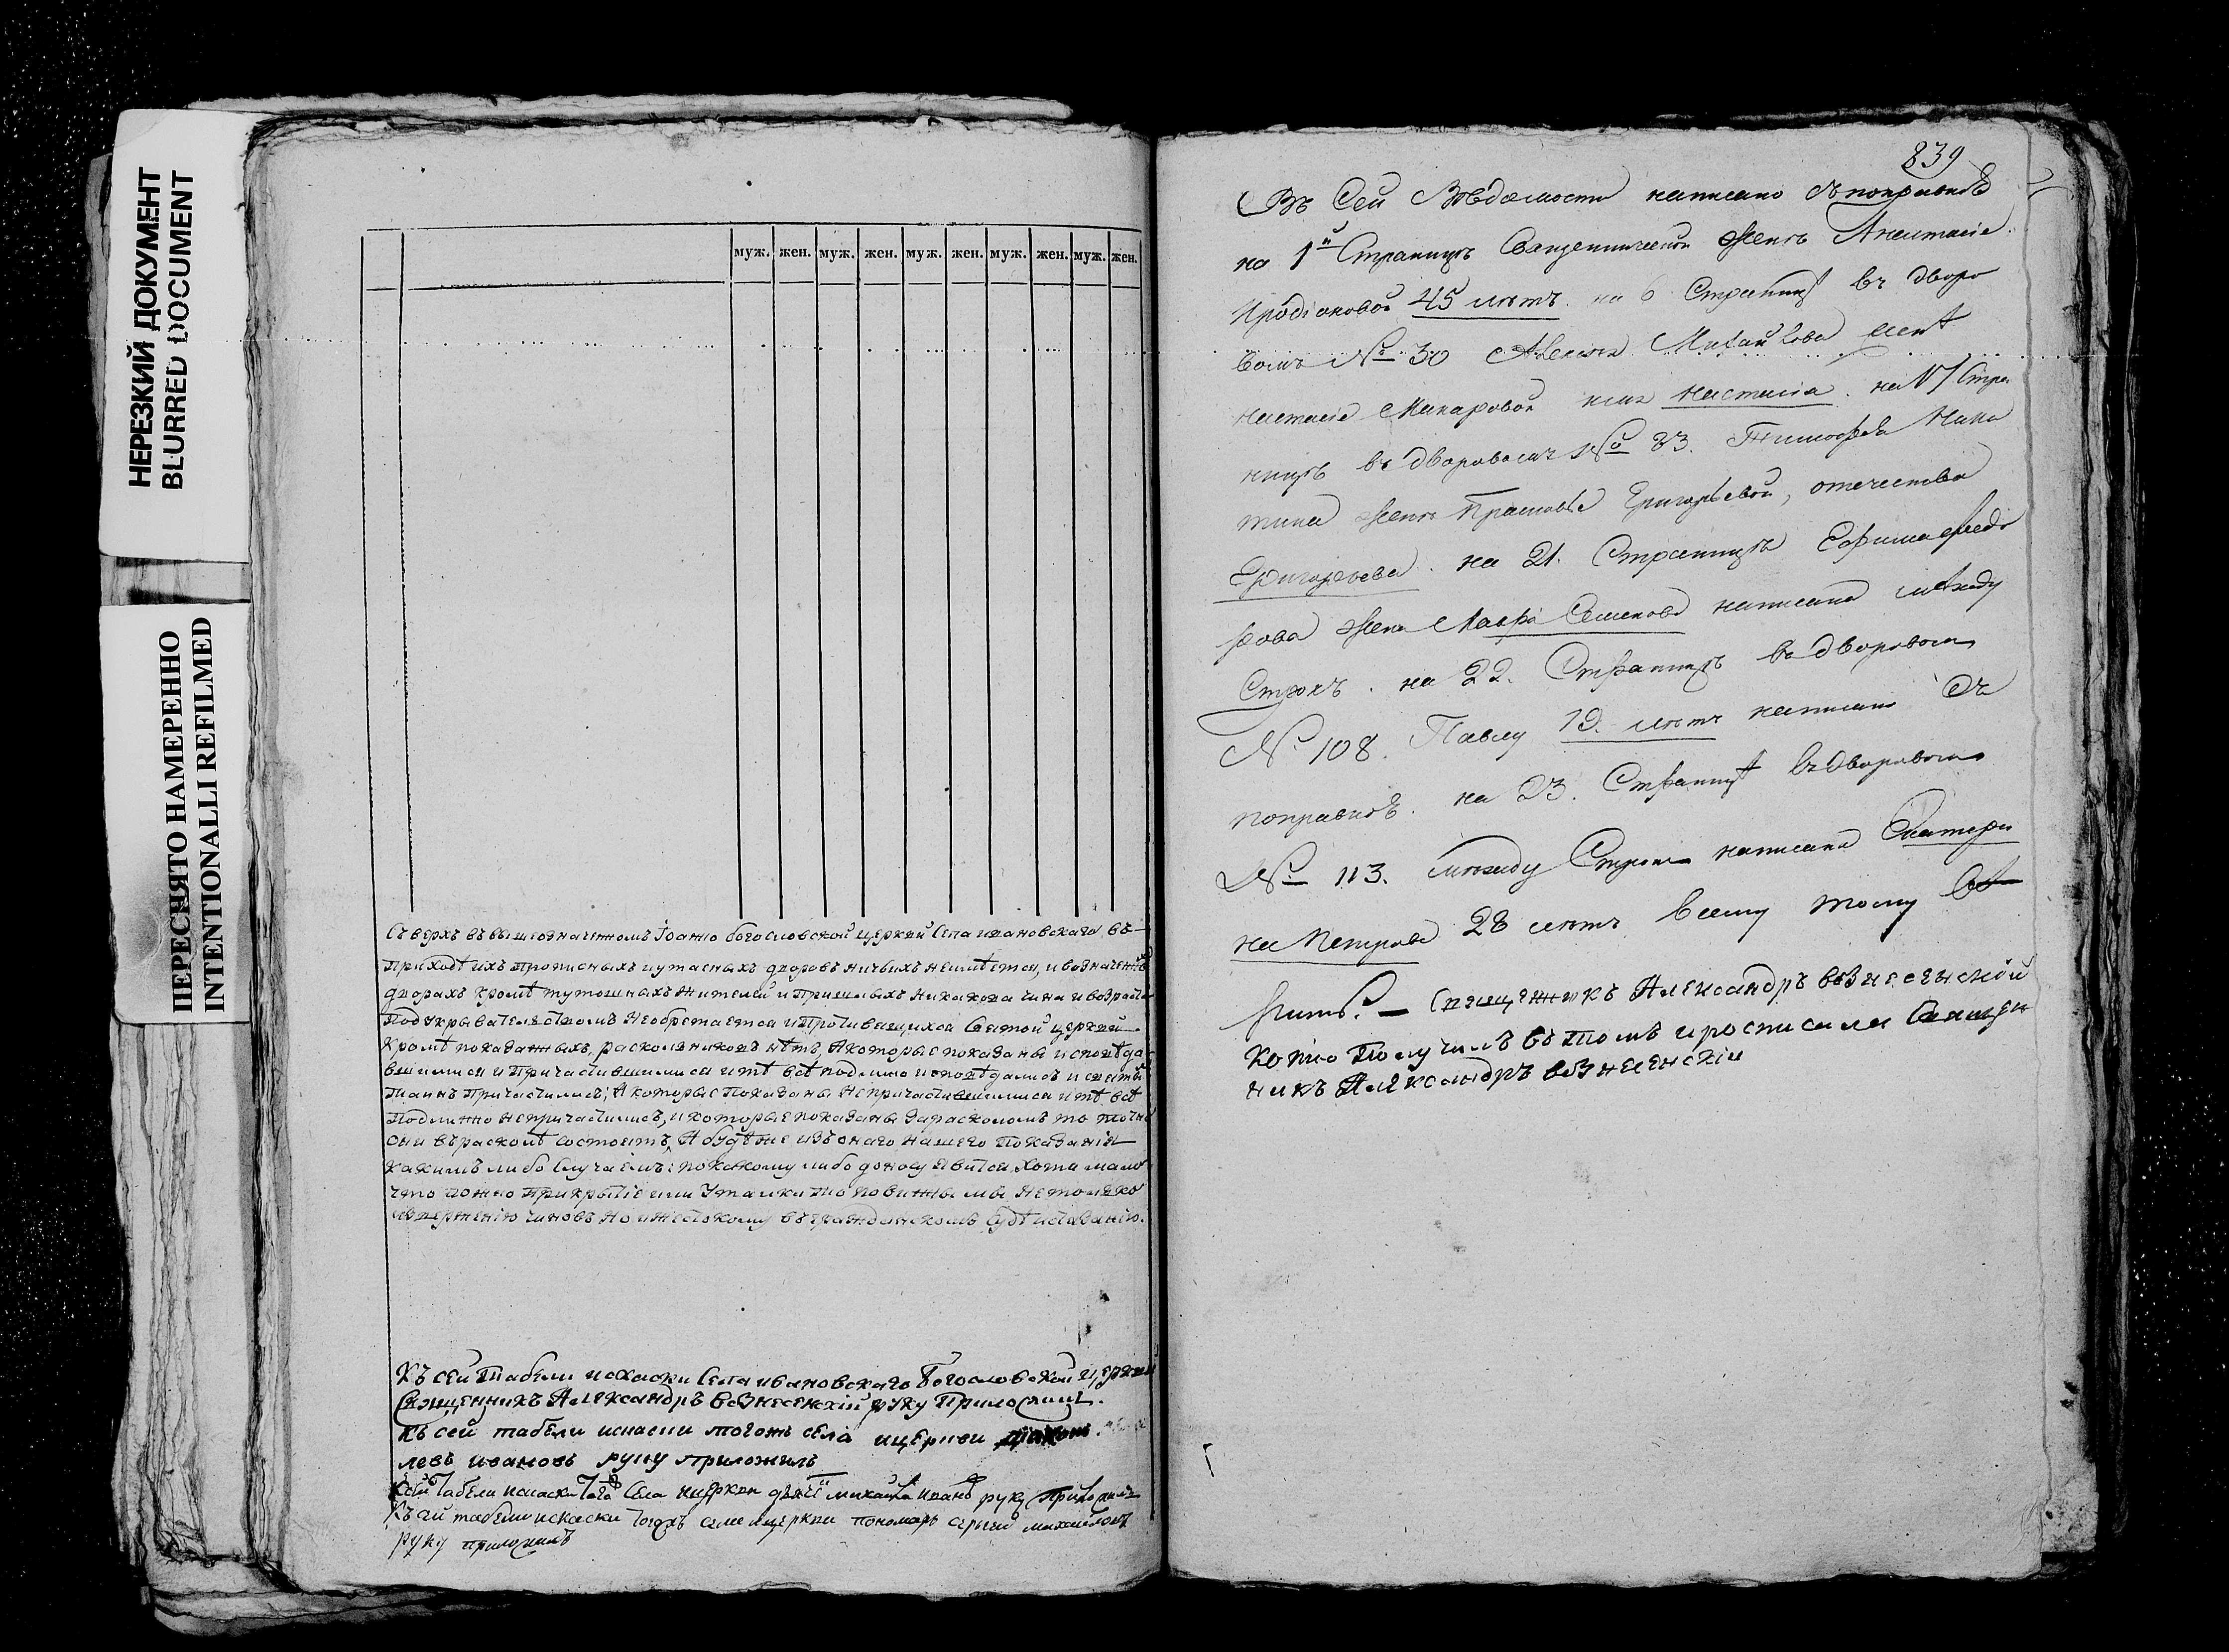 НЕРЕЗКИЙ ДОКУМЕНТ
BLURRED DOCUMENT
ПЕРЕСНЯТО НАМЕРЕННО
INTENTIONALLI REFILMED
муж. жен. муж. жен. муж. жен. муж. жен. муж. жен.
Съверхъ въ вышеозначенномъ Іоанно богословской церкви Села ивановскаго въ
приходѣ ихъ прописныхъ и утаеныхъ дворовъ ничьихъ неимѣется, и возначенны
дворахъ кромѣ тутошныхъ жителей и пришлыхъ никакова чина и возраста
подукрывателствомъ необретается и противящихся Святой церкви
кромѣ показанныхъ, расколниковъ нѣтъ, А которые показаны исповѣда
вшимися и причастившимися и тѣ всѣ подлинно исповѣдались и святы
таинъ причастились; А которые показаны непричастившимися и тѣ всѣ
подлинно непричастились, и которые показаны зараскономъ то точно
они въ расколѣ состоятъ, А будѣ же изъ онаго нашего показанія
какимъ либо случаемъ: по какому либо доносу явится, хотя мало
что ложно прикрытіе или утайка то повинны мы нетолко
извержению чиновъ но и жестокому въ гражданскомъ судѣ истязанію.
Къ сей табели и скаски Села ивановскаго Богословской церкви
Священникъ Александръ вознесенскій руку приложилъ.
Къ сей табели и скаски тогожъ села и церкви діаконъ
левъ ивановъ руку приложилъ
Ксей табели искаски тогожъ Села и церкви дьячекъ михайла ивановъ руку приложилъ
Къ сей табели искаски тогожъ села ицеркви пономарь сергей михайловъ
руку приложилъ
839
Въ Сей Вѣдомости написано съ поправкой
на 1й Страницѣ Священнической женѣ Анастасіе
Иродіоновой 45 лѣтъ. на 6 Страницѣ въ дворо
вомъ № 30 Алексѣя Михайлова женѣ
настасіе Макаровой имя настасіа. на 17 Стра
ницѣ въ дворовомъ № 83. Тимофея Ники
тина женѣ Прасковье Григорьевой, отечество
Григорьева. на 21. Страницѣ Ефима Федо
рова жена Мавра Семенова написана между
Строкъ. на 22. Страницѣ въ дворовомъ
№ 108. Павлу 19. лѣтъ написано съ
поправкой. на 23. Страницѣ въ дворовомъ
№ 113. между Строкъ написана Екатери
на Петрова 28 лѣтъ всему тому вѣ
рить. — Священникъ Александръ вознесенской
копию получилъ въ томъ и росписался Священ
никъ Александръ вознесенскіи